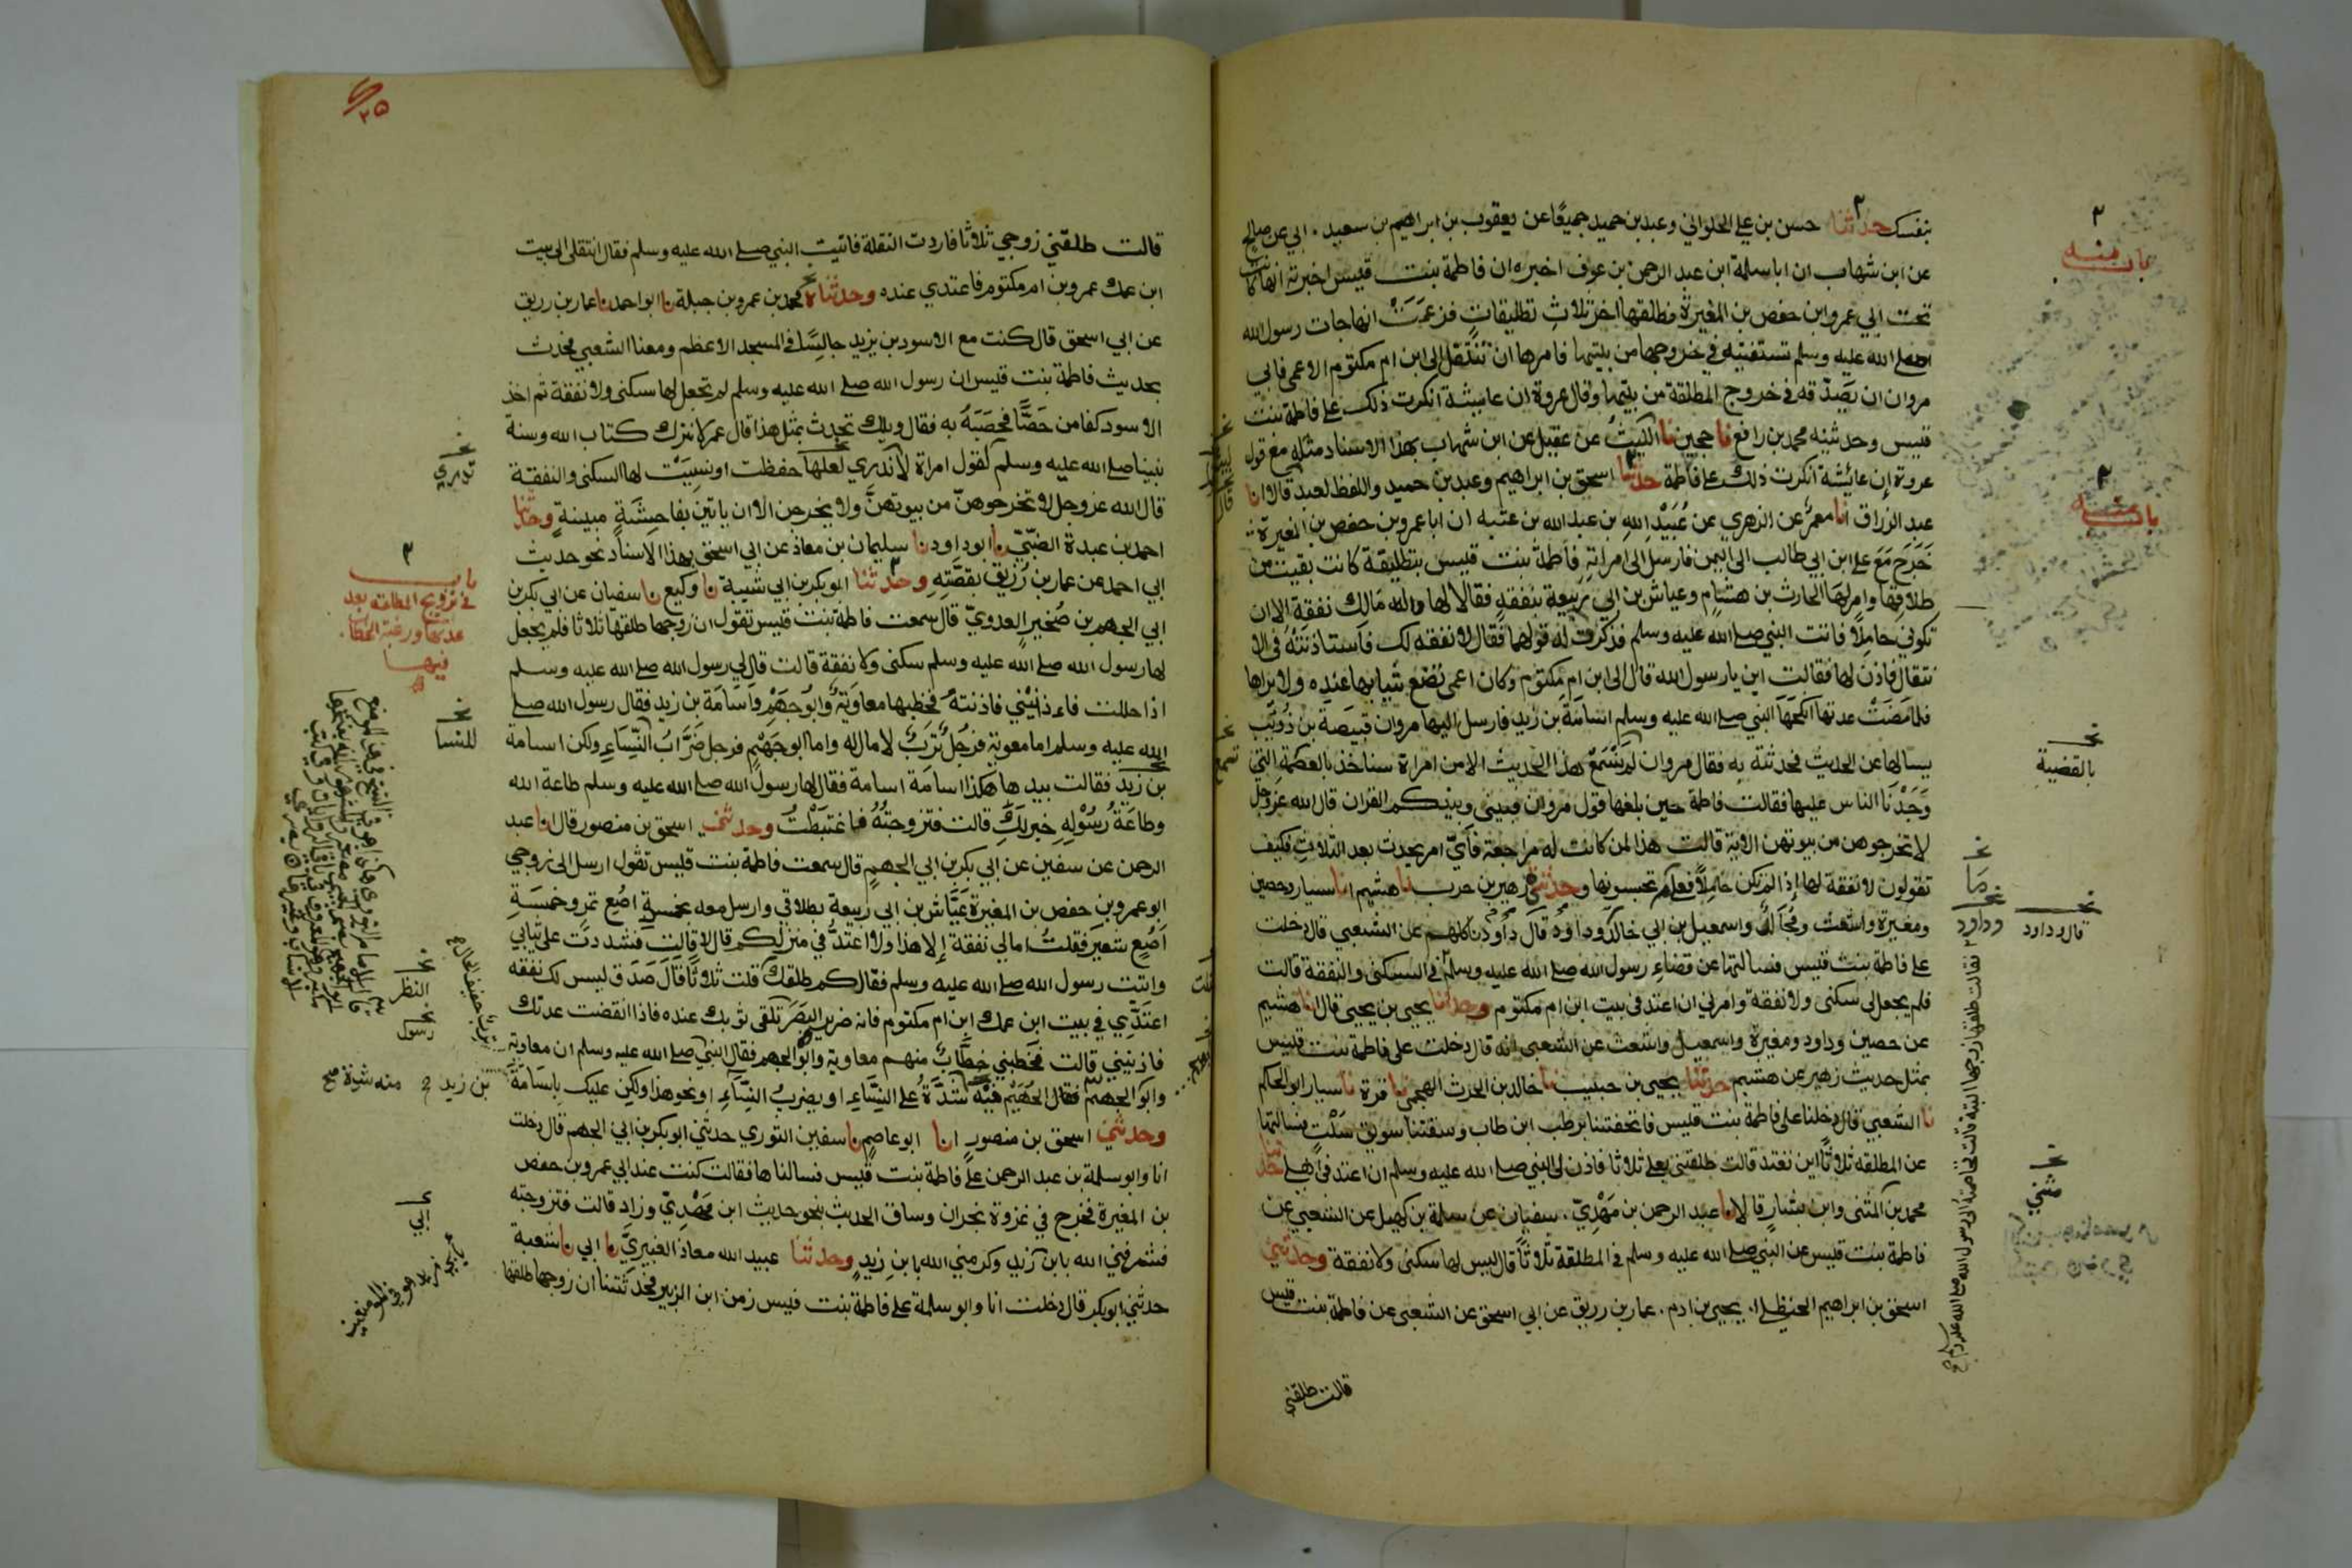 بنفسك حدثنا حسن بن علي الحلواني وعبد بن حميد جميعًا عن يعقوب بن ابراهيم بن سعيد ابي عن صالح
عن ابن شهاب ان ابا سلمة ابن عبد الرحمن بن عوف اخبره ان فاطمة بنت قيس اخبرته انها كانت
تحت ابي عمرو ابن حفص بن المغيرة فطلقها اخر ثلاثِ تطليقاتٍ فزعمَتْ انها جات رسول الله
صلى الله عليه وسلم تستفتيه في خروجها من بيتها فامرها ان تنتقل الى ابن ام مكتوم الاعمى فابى
مروان ان يصدّقه في خروج المطلقة من بيتها وقال عروة ان عايشة انكرت ذلك على فاطمة بنت
قيس وحدثنيه محمد بن رافع نا حجين نا الليثُ عن عقيل عن ابن شهاب بهذا الاسناد مثله مع قول
عروة إن عائشة انكرت ذلك على فاطمة حدثنا اسحق بن ابراهيم وعبد بن حميد واللفظ لعبد قالا انا
عبد الرزاق انا معمرٌ عن الزهري عن عُبَيْدِ اللهِ بن عبد الله بن عتبه ان ابا عمرو بن حفص بن المغيرة
خَرَجَ مَعَ على ابن ابي طالب الى اليمن فارسل الى امراتهِ فاطمة بنت قيس بتطليقة كانت بقيت من
طلاقِها وامر لهَا الحارث بن هشام وعياش بن ابي ربيعة بنفقةٍ فقالا لها والله مَالك نفقة الا ان
تكوني حاملًا فاتت النبي صلى الله عليه وسلم فذكرت له قولهما فقال لا نفقه لك فاستاذنته في الا
نتقال فاذن لها فقالت اين يا رسول الله قال الى ابن ام مكتوم وكان اعمى تضع ثيابها عنده ولا يراها
فلما مضَتْ عدتها انكحَهَا النبي صلى الله عليه وسلم اسامة بن زيد فارسل اليها مروان قبيصة بن ذُوَيْب
يسالها عن الحديث فحدثته به فقال مروان لم نَسْمَعْ هذا الحديث الا من امراة سناخذ بالعصمة التي
وَجَدْنَا الناس عليها فقالت فاطمة حين بلغها قول مروان فبيني وبينكم القران قال الله عز وجل
لا تخرجوهن من بيوتهن الاية قالت هذا لمن كانت له مراجعة فأيّ امر يحدث بعد الثلاثِ فكيف
تقولون لا نفقة لها إذ المرتكن حَامِلاً فعلام تحبسونها وحدثني زهير بن حرب نا هشيم انا سيار وحصين
ومغيرة واشعث ومجالد واسمعيل بن ابي خالد وداود قال داود نا كلهم عن الشعبي قال دخلت
على فاطمة بنت قيس فسالتها عن قضاءِ رسول الله صلى الله عليه وسلم في السكنى والنفقة قالت
فلم يجعل لي سكنى ولا نفقة وامرني ان اعتد في بيت ابن ام مكتوم وحدثنا يحيى بن يحيى قال انا هشيم
عن حصين وداود ومغيرة واسمعيل واشعث عن الشعبي انه قال دخلت على فاطمة بنت قيس
بمثل حديث زهير عن هشيم حدثنا يحيى بن حبيب نا خالد بن الحرث الهجمي نا قرة نا سيار ابو الحكم
نا الشعبي قال دخلنا على فاطمة بنت قيس فاتحفتنا برطب ابن طاب وسقتنا سويق سُلْتٍ فسالتها
عن المطلقه ثلاثًا اين تعتد قالت طلقنى بعلي ثلاثا فاذن لي النبي صلى الله عليه وسلم ان اعتد في اهلي حدثنا
محمد بن المثنى وابن بشار قالا نا عبد الرحمن بن مَهْدِيّ سفيان عن سلمة بن كهيل عن الشعبي عن
فاطمة بنت قيس عن النبي صلى الله عليه وسلم في المطلقة ثلاثًا قال ليس لها سكنى ولا نفقة وحدثني
اسحق بن ابراهيم الحنظلي انا يحيى بن ادم عمار بن رزيق عن ابي اسحق عن الشعبي عن فاطمة بنت قيس
قالت طلقني
باب منه
باب منه
بالقضية
مَا
وداود
قال داود
فقالت طلقها زوجها البتة قالت فخاصمته الى رسول الله صلى الله عليه وسلم
مثني
٢٥
قالت طلقني زوجي ثلاثا فاردت النقلة فاتيت النبي صلى الله عليه وسلم فقال انتقلى الى بيت
ابن عمك عمرو بن ام مكتوم فاعتدي عنده وحدثناه محمد بن عمرو بن جبلة نا ابو احمد نا عمار بن رزيق
عن ابي اسحق قال كنت مع الاسود بن يزيد جالسًا في المسجد الاعظم ومعنا الشعبي فحدث
بحديث فاطمة بنت قيس ان رسول الله صلى الله عليه وسلم لم يجعل لها سكنى ولا نفقة ثم اخذ
الاسود كفا من حَصًا فحصَبَهُ به فقال ويلك تحدث بمثل هذا قال عمر لا نترك كتاب الله وسنة
نبينا صلى الله عليه وسلم لقول امراة لا ندري لعلها حفظت او نسِيَتْ لها السكنى والنفقة
قال الله عز وجل لا تخرجوهنّ من بيوتهنَّ ولا يخرجن الا ان ياتين بفاحِشَةٍ مبينةٍ وحدثنا
احمد بن عبدة الضبّيّ نا ابو داود نا سليمان بن معاذ عن ابي اسحق بهذا الاسناد نحو حديث
ابي احمد عن عمار بن رُزيق بقصَّتِهِ وحدثنا ابو بكر بن ابي شيبة نا وكيع نا سفيان عن ابي بكر بن
ابي الجهم بن صُخير العدويّ قال سمعت فاطمة بنت قيس تقول ان زوجها طلقها ثلاثا فلم يجعل
لها رسول الله صلى الله عليه وسلم سكنى ولا نفقة قالت قال لي رسول الله صلى الله عليه وسلم
اذا حللت فاءذنيني فاذنته فخطبها معاوية وابُو جَهْمٍ واسَامَة بن زيد فقال رسول الله صلى
الله عليه وسلم اما معوية فرَجُلٌ تَرِبٌ لا مال له واما ابو جَهْمٍ فرجل ضَرَّابُ النّسَاءِ ولكن اسامة
بن زَيد فقالت بيدها هكذا اسامَة اسامة فقال لها رسول الله صلى الله عليه وسلم طاعة الله
وطاعَةُ رَسُوْلِهِ خير لكِ قالت فتزوجتهُ فاغتبَطْتُ وحدثني اسحق بن منصور قال انا عبد
الرحمن عن سفين عن ابي بكر بن ابي الجهم قال سمعت فاطمة بنت قيس تقول ارسل الى زوجي
ابو عمرو بن حفص بن المغيرة عَيَّاش بن ابي ربيعة بطلاقي وارسل معه بخمسةِ اصُع تمر وخمسَةِ
اَصُع شعير فقلتُ امالي نفقة إلا هذا ولا اعتدُّ في منزلكم قال لا قالت فشددتُ على ثيابي
واتيت رسول الله صلى الله عليه وسلم فقال كم طلقك قلت ثلاثًا قَالَ صَدَق ليس لك نفقه
اعتدّي في بيت ابن عمك ابن ام مكتوم فانه ضرير البَصَر تلقى ثوبك عنده فاذا انقضت عدتك
فاذنيني قالت فخطبني خطَّابٌ منهم معاوية وابُو الجهم فقال النبي صلى الله عليه وسلم ان معاوية
وابُو الجهم منه شدّةٌ على النسَاءِ او يضربُ النسَاءِ او نحو هذا ولكن عليك باسَامَة
وحدثني اسحق بن منصور انا ابو عاصم نا سفين الثوري حدثني ابو بكر بن ابي الجهم قال دخلت
انا وابو سلمة بن عبد الرحمن على فاطمة بنت قيس فسالناها فقالت كنت عند ابي عمرو بن حفص
بن المغيرة فخرج في غزوة نجران وساق الحديث بنحو حديث ابن مَهْدِيّ وزاد قالت فتزوجته
فشرفني الله بابن زيد وكرمني الله بابن زيدٍ وحدثنا عبيد الله معاذ العنبريّ نا ابي نا شعبة
حدثني ابو بكر قال دخلت انا وابو سلمة على فاطمة بنت قيس زمن ابن الزبير فحدثتنا ان زوجها طلقها
تدري
باب
في تزويج المطلقه بعد
عدتها ورغبة الخطاب
فيها
للنسا
النظر
رسول
بن زيد
منه شدة صح
ابي